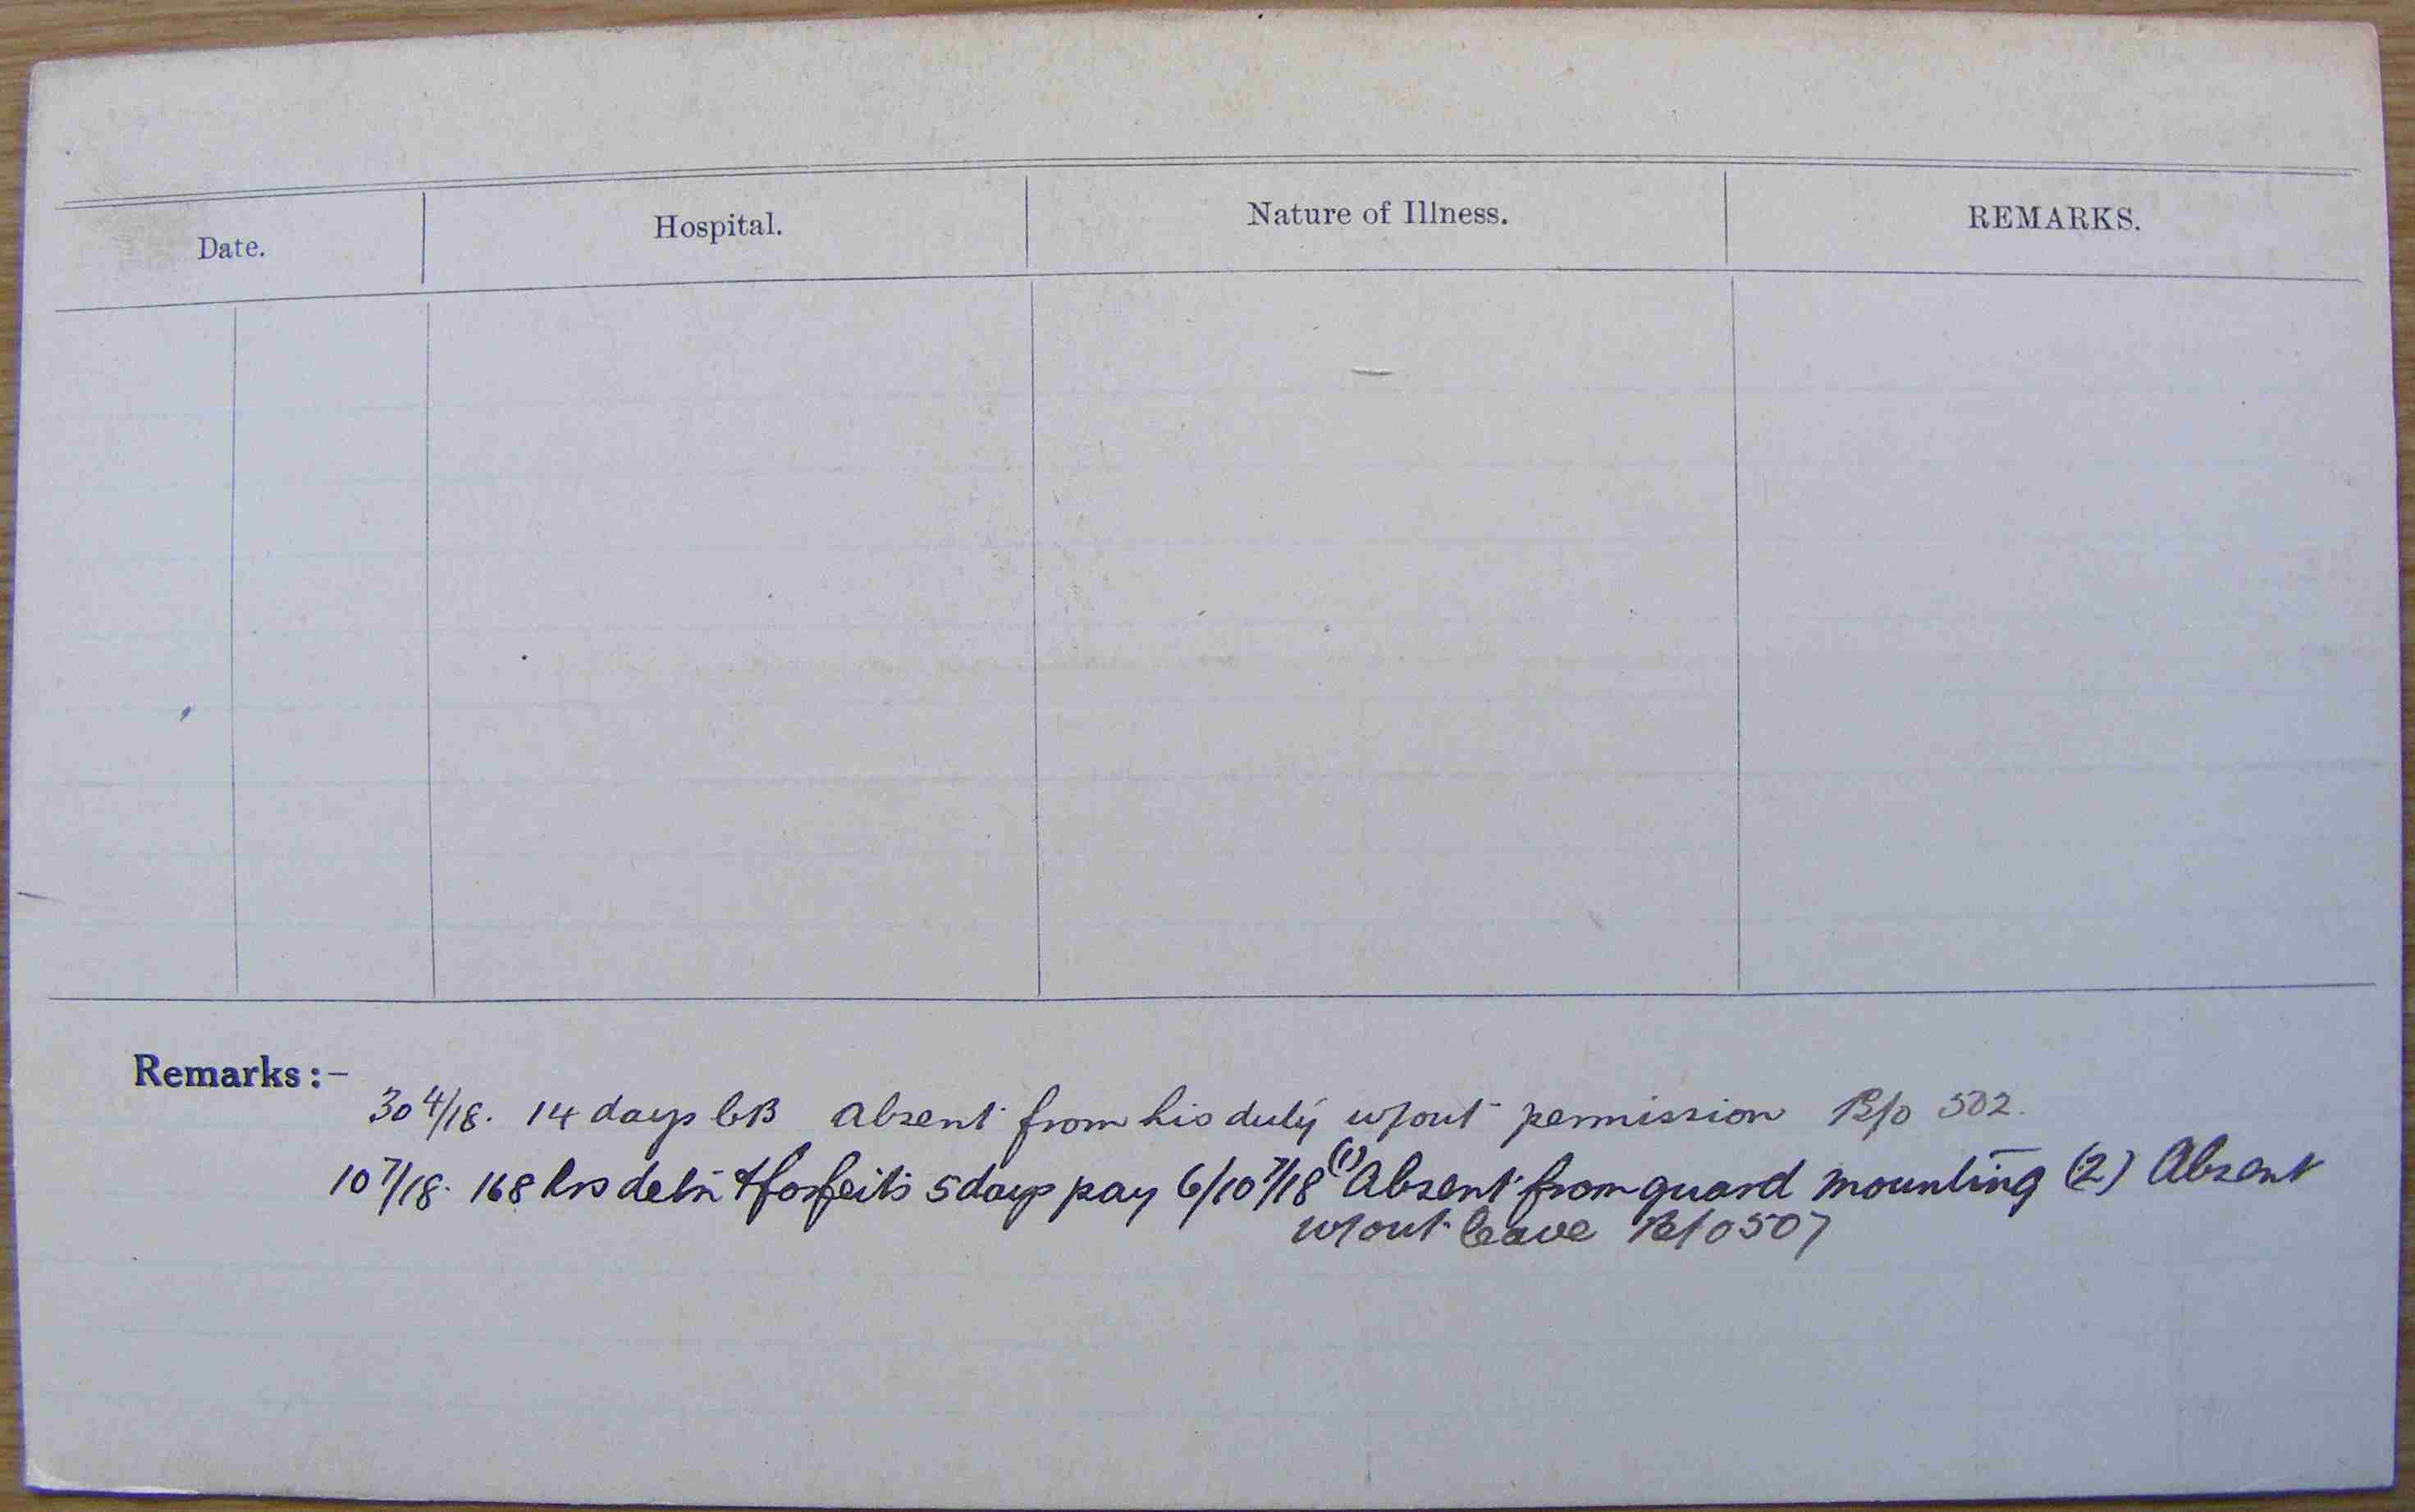 Date. Hospital. Nature of Illness. REMARKS.
Remarks:-
30 4/18. 14 days CB Absent from his duty w/out permission B/o 502.
10 7/18. 168 hrs detn & forfeits 5 days pay 6/10 7/18 (1) Absent from guard mounting (2) Absent
w/out leave B/o 507